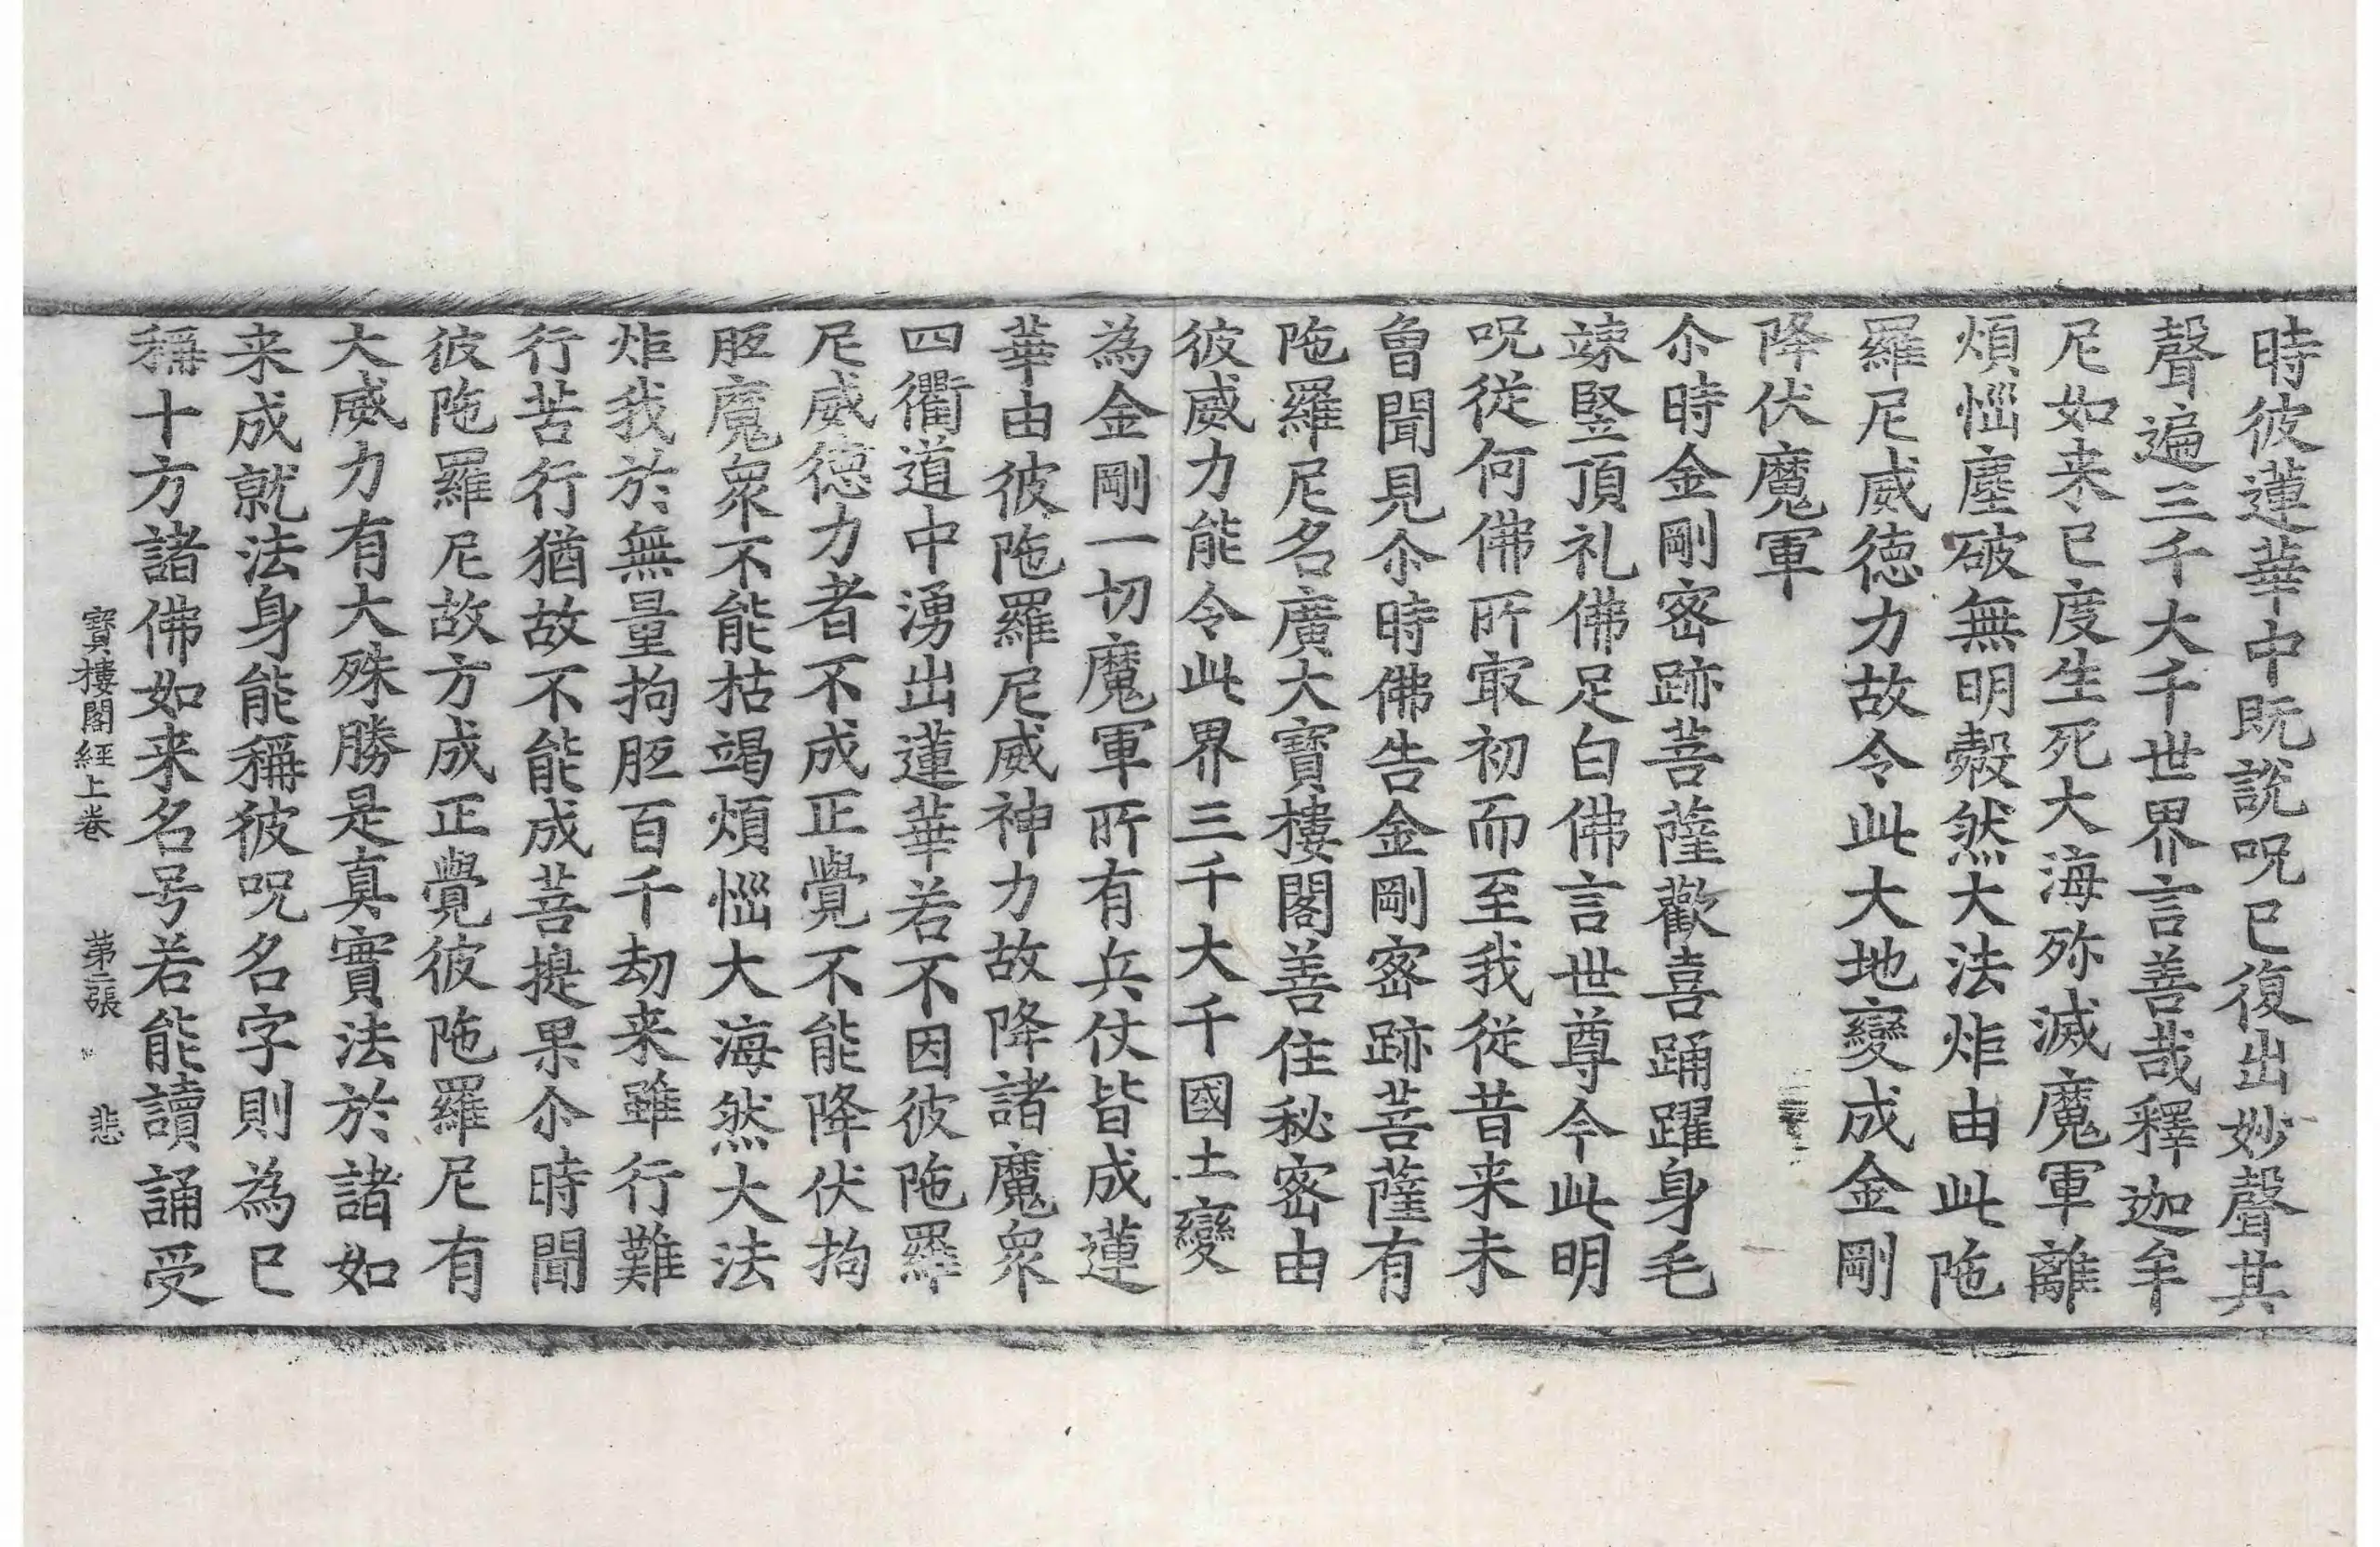 時彼蓮華中既說呪已復出妙聲其
聲遍三千大千世界言善哉釋迦牟
尼如来已度生死大海殄滅魔軍離
煩惱塵破無明㲉然大法炬由此陁
羅尼威德力故令此大地變成金剛
降伏魔軍
尒時金剛密跡菩薩歡喜踊躍身毛
竦竪頂礼佛足白佛言世尊今此明
呪従何佛所冣初而至我従昔来未
曾聞見尒時佛告金剛密跡菩薩有
陁羅尼名廣大寶樓閣善住秘密由
彼威力能令此界三千大千國土變
為金剛一切魔軍所有兵仗皆成蓮
華由彼陁羅尼威神力故降諸魔衆
四衢道中湧出蓮華若不因彼陁羅
尼威德力者不成正覺不能降伏拘
胝魔衆不能枯竭煩惱大海然大法
炬我於無量拘胝百千劫来雖行難
行苦行猶故不能成菩提果尒時聞
彼陁羅尼故方成正覺彼陁羅尼有
大威力有大殊勝是真實法於諸如
来成就法身能稱彼呪名字則為已
稱十方諸佛如来名号若能讀誦受
寶樓閣經上卷 第二張 悲